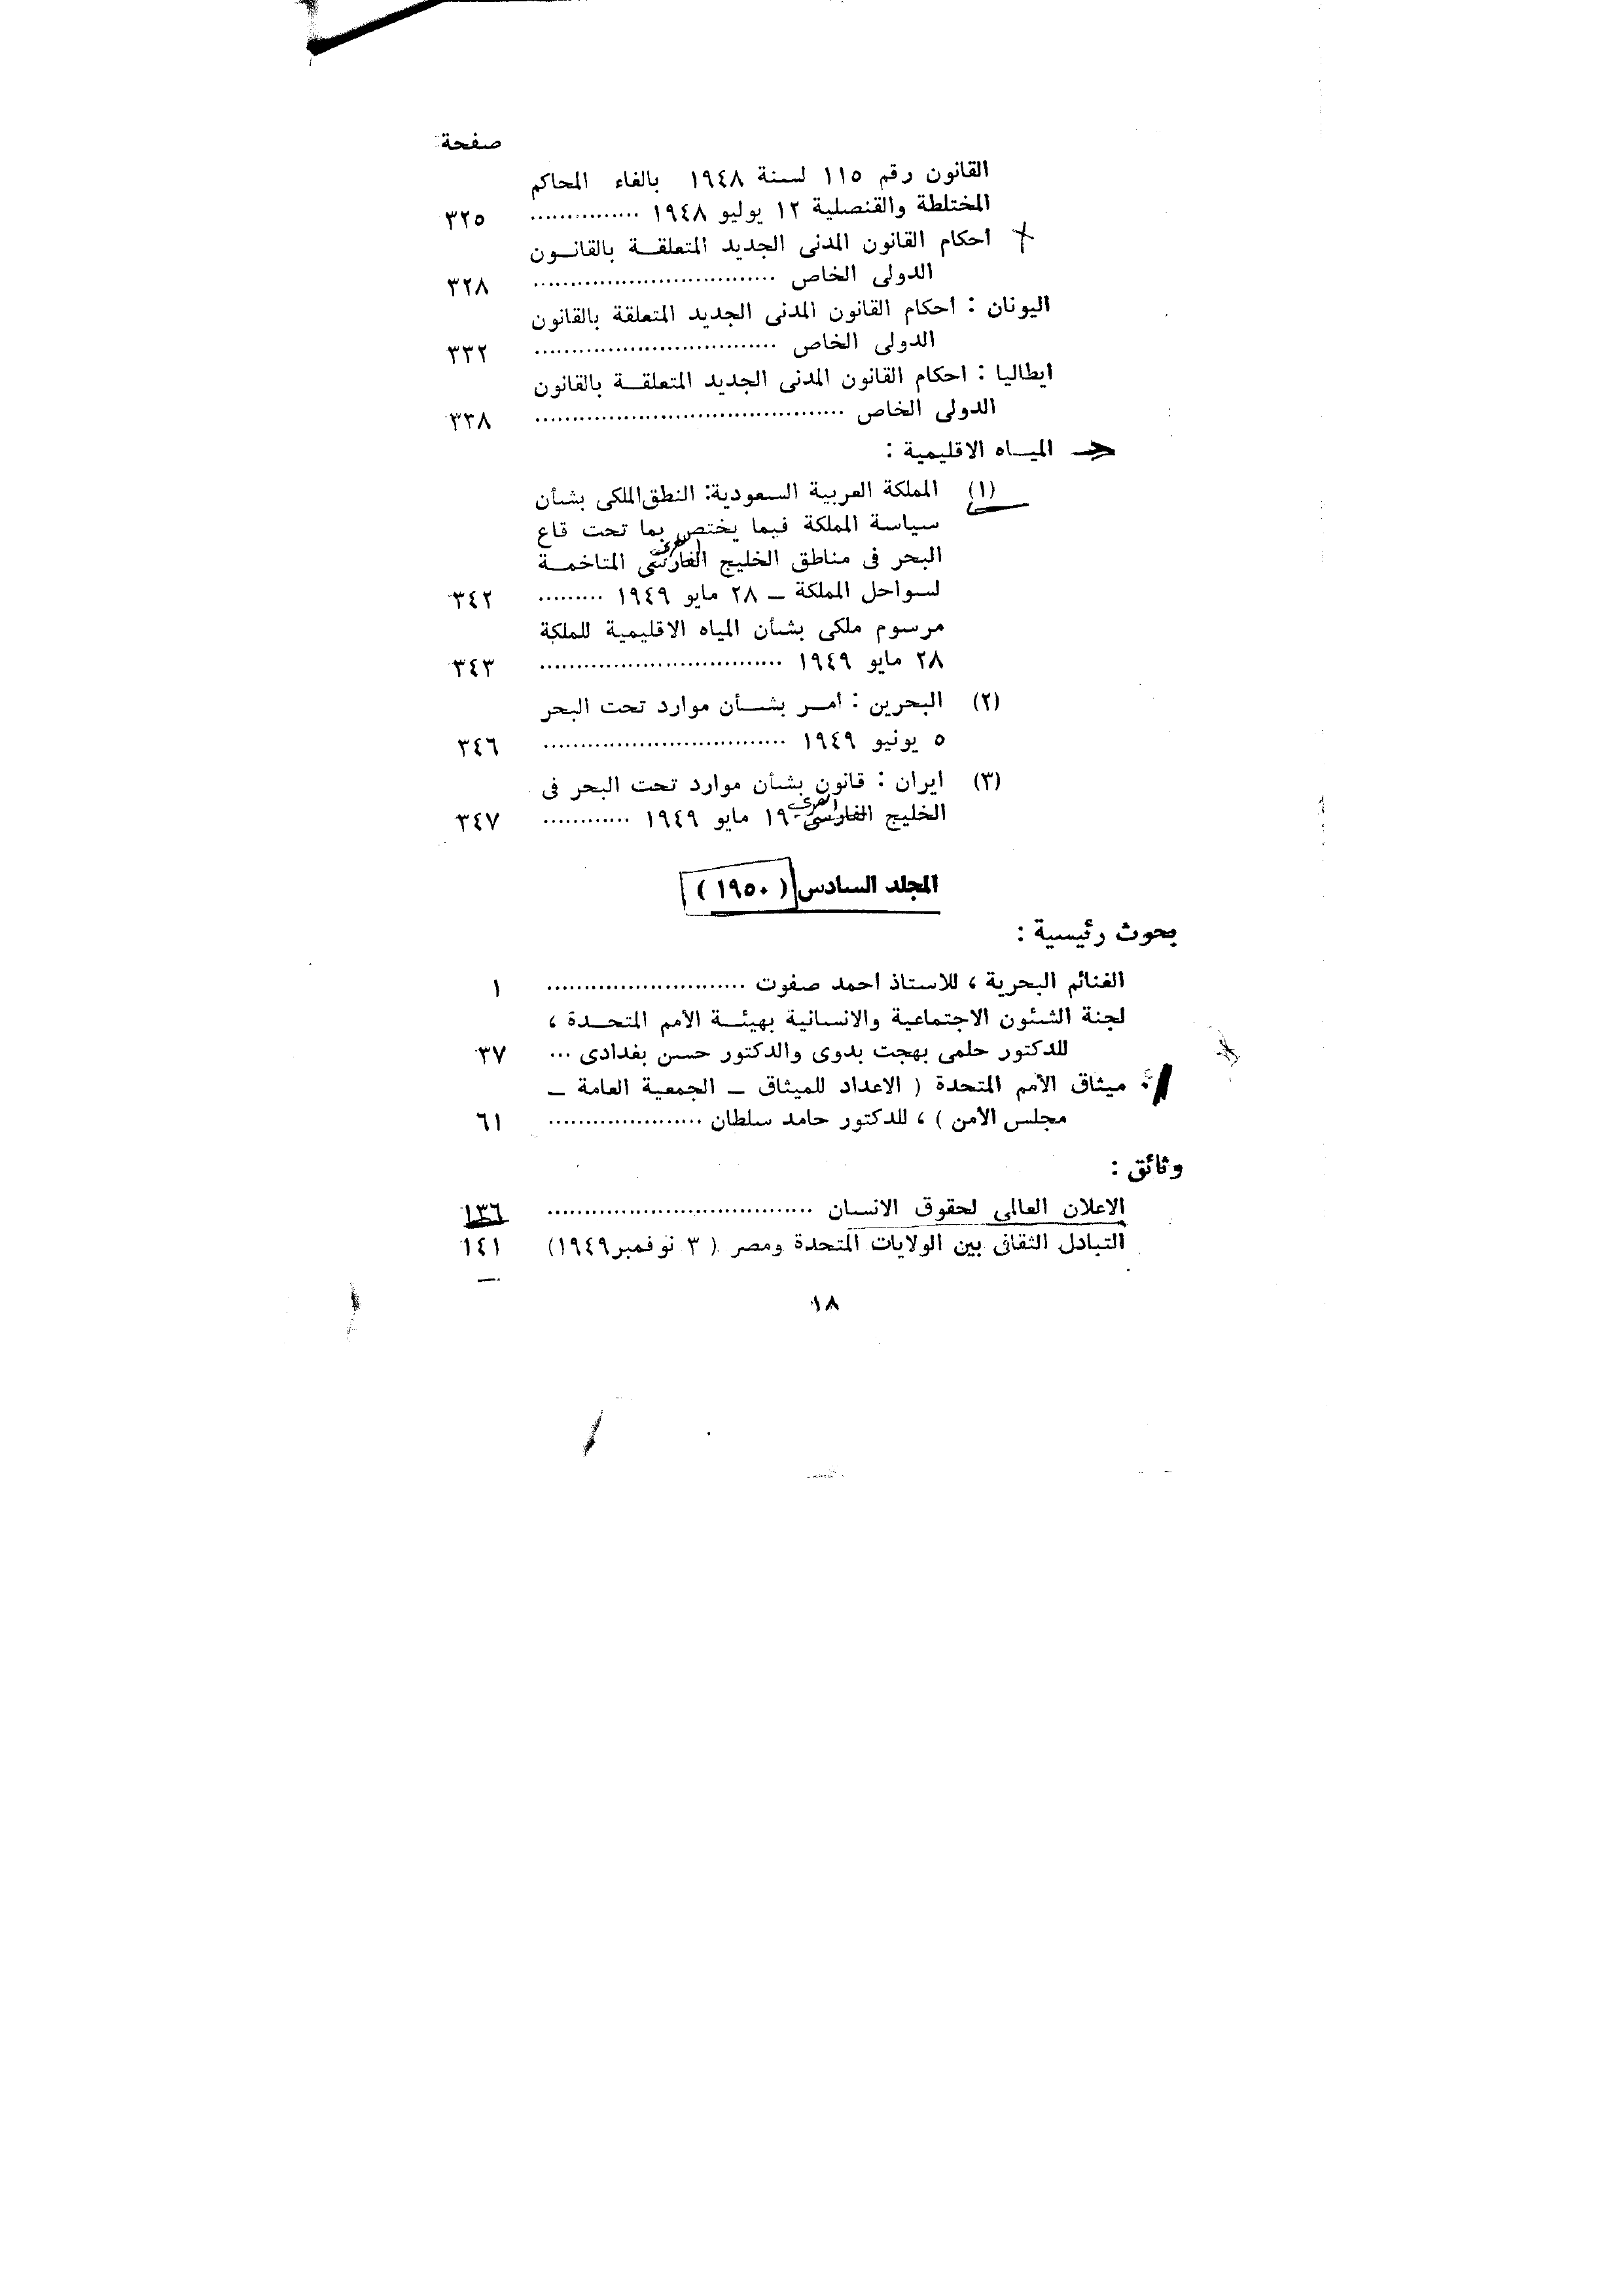 صفحة
القانون رقم ١١٥ لسنة ١٩٤٨ بالغاء المحاكم
المختلطة والقنصلية ١٢ يوليو ١٩٤٨ ............... ٣٢٥
احكام القانون المدنى الجديد المتعلقة بالقانون
الدولى الخاص ................................. ٣٢٨
اليونان : احكام القانون المدنى الجديد المتعلقة بالقانون
الدولى الخاص ................................. ٣٣٢
ايطاليا : احكام القانون المدنى الجديد المتعلقة بالقانون
الدولى الخاص .......................................... ٣٣٨
المياه الاقليمية :
(١) المملكة العربية السعودية: النطق الملكى بشأن
سياسة المملكة فيما يختص بما تحت قاع
العربي
البحر فى مناطق الخليج الفارسى المتاخمة
لسواحل المملكة ــ ٢٨ مايو ١٩٤٩ ......... ٣٤٢
مرسوم ملكى بشأن المياه الاقليمية للملكة
٢٨ مايو ١٩٤٩ ................................. ٣٤٣
(٢) البحرين : امر بشأن موارد تحت البحر
٥ يونيو ١٩٤٩ ................................. ٣٤٦
(٣) ايران : قانون بشأن موارد تحت البحر فى
العربي
الخليج الفارسى ١٩ مايو ١٩٤٩ ............ ٣٤٧
المجلد السادس ( ١٩٥٠ )
بحوث رئيسية :
الغنائم البحرية ، للاستاذ احمد صفوت ........................... ١
لجنة الشئون الاجتماعية والانسانية بهيئة الأمم المتحدة ،
للدكتور حلمى بهجت بدوى والدكتور حسن بغدادى ... ٣٧
ميثاق الأمم المتحدة ( الاعداد للميثاق ــ الجمعية العامة ــ
مجلس الأمن ) ، للدكتور حامد سلطان ..................... ٦١
وثائق :
الاعلان العالمى لحقوق الانسان .................................... ١٣٦
التبادل الثقافى بين الولايات المتحدة ومصر ( ٣ نوفمبر ١٩٤٩) ١٤١
١٨